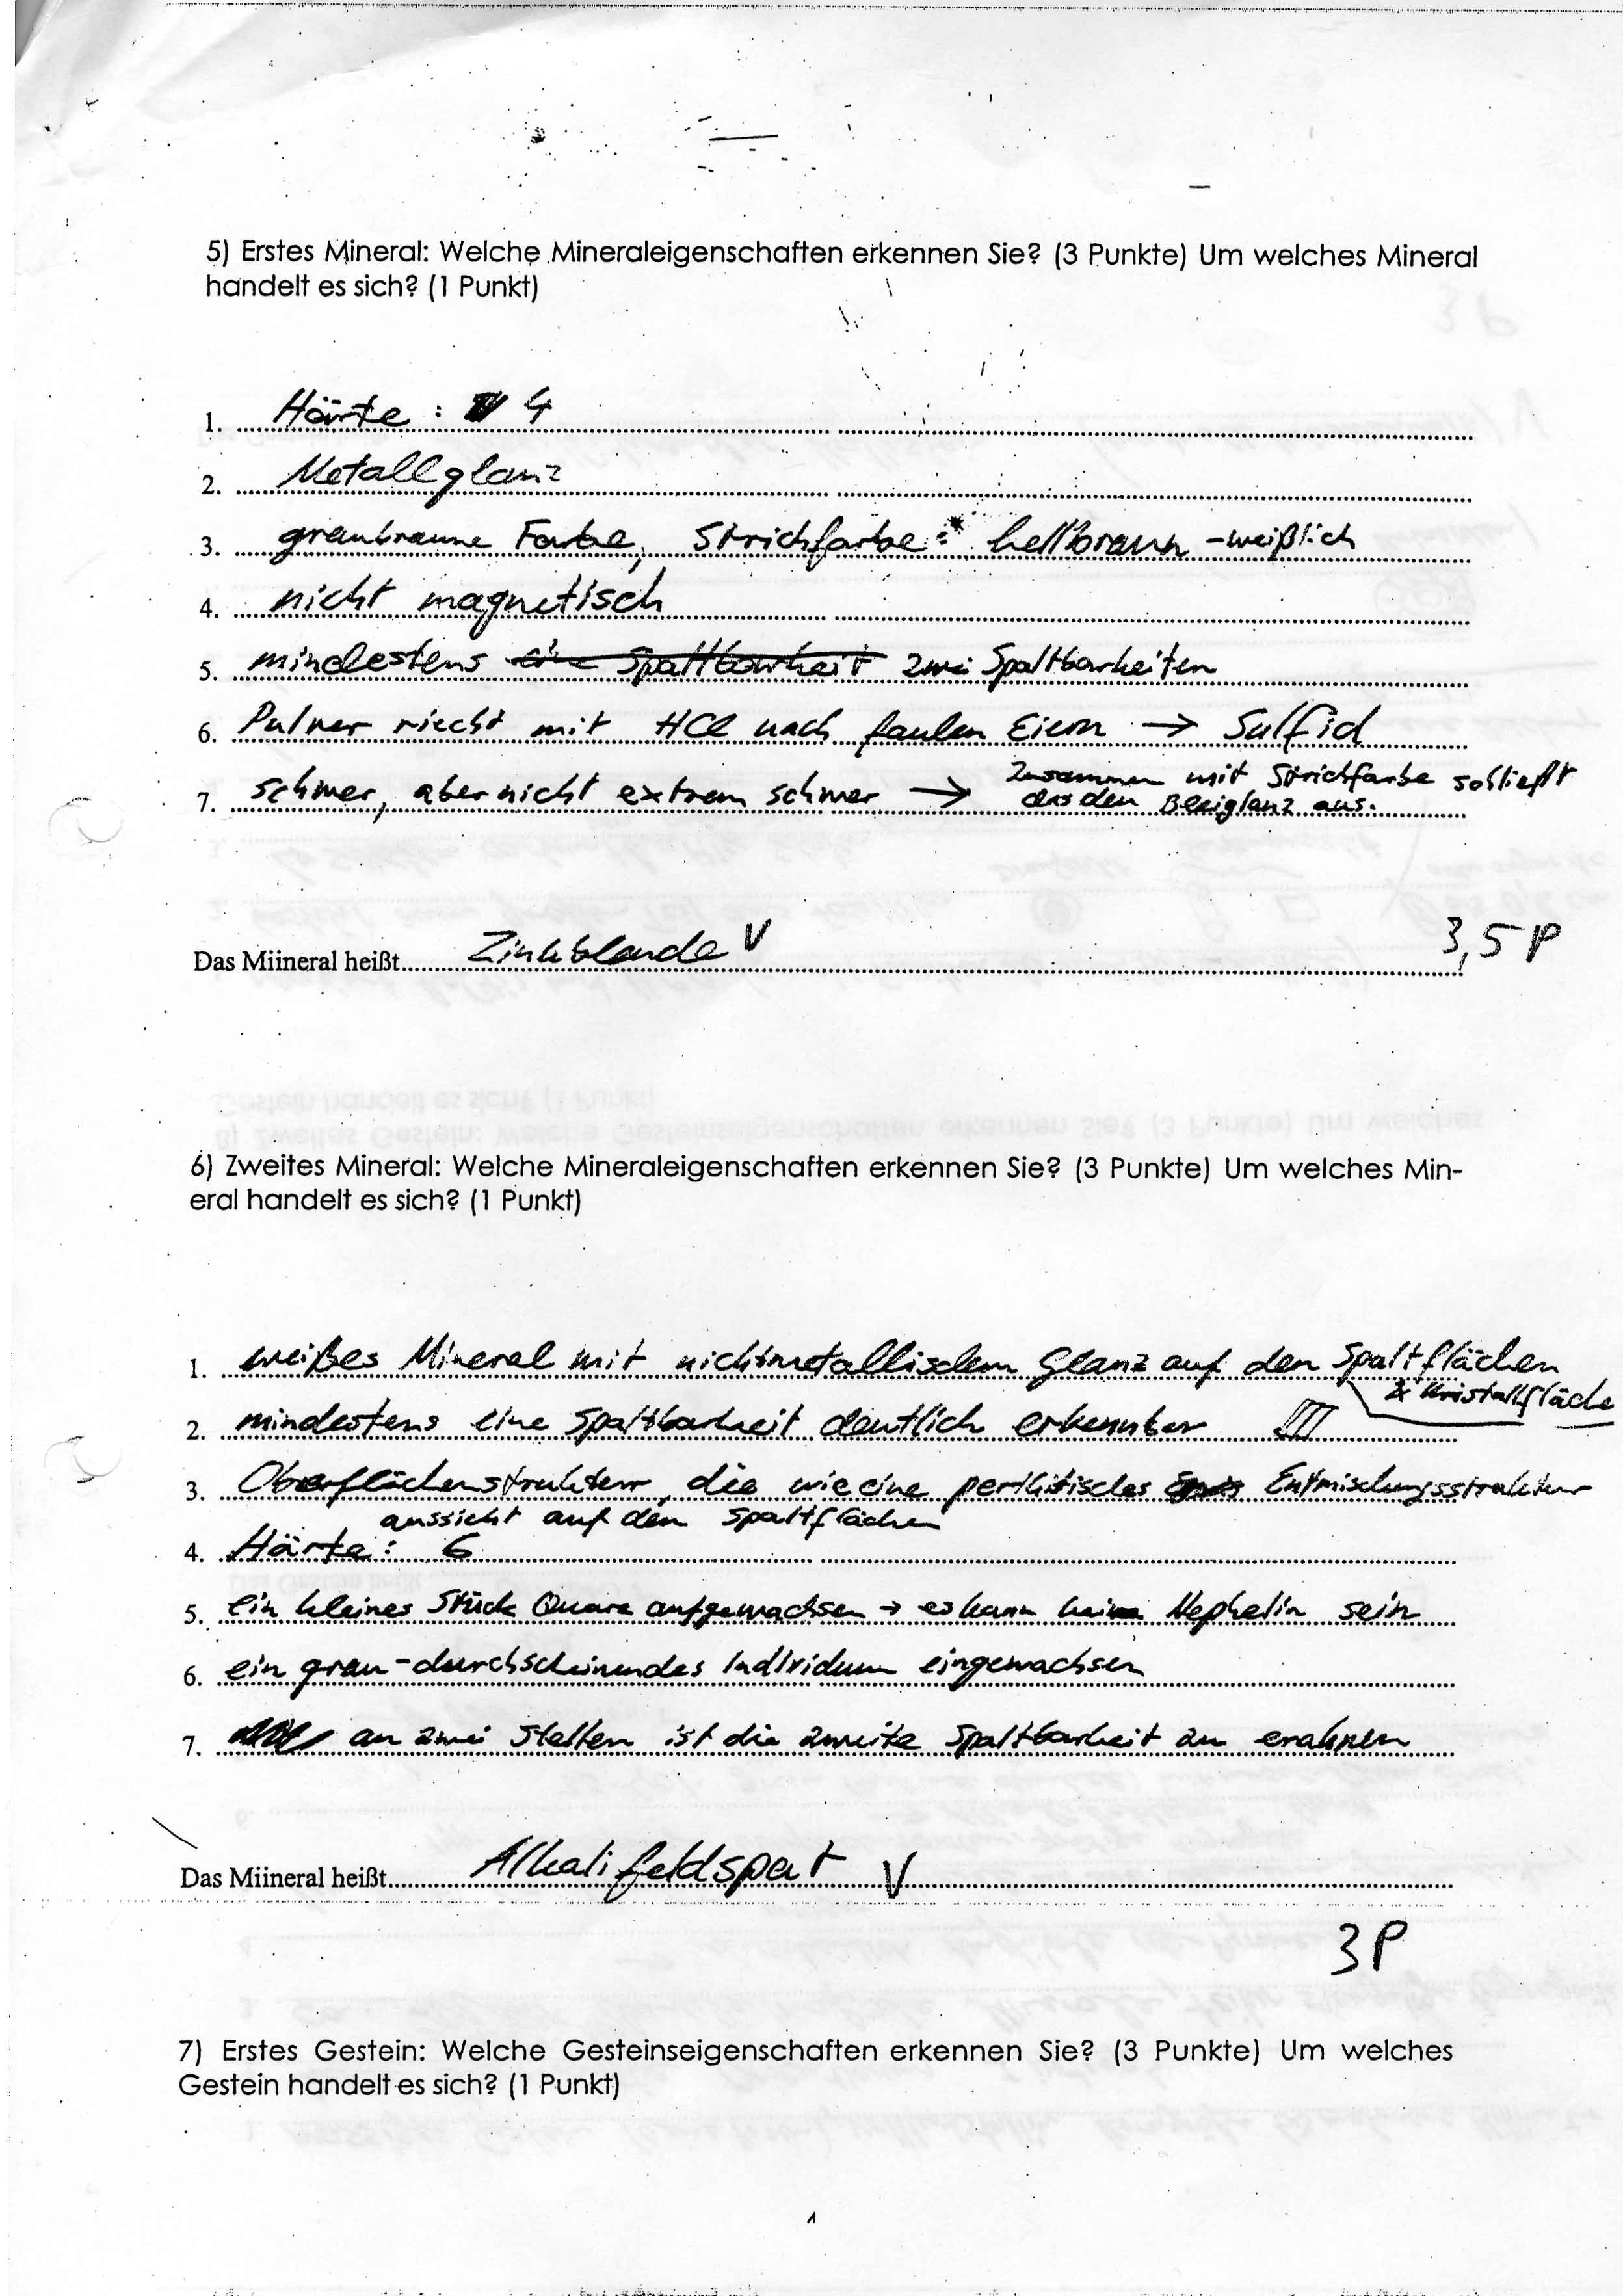 5) Erstes Mineral: Welche Mineraleigenschaften erkennen Sie? (3 Punkte) Um welches Mineral
handelt es sich? (1 Punkt)
1. Härte: 4
2. Metallglanz
3. graubraune Farbe, Strichfarbe: hellbraun -weißlich
4. nicht magnetisch
5. mindestens eine Spaltbarkeit zwei Spaltbarkeiten
6. Pulver riecht mit HCl nach faulen Eiern → Sulfid
7. schwer, aber nicht extrem schwer → zusammen mit Strichfarbe schließt
das den Bleiglanz aus.
Das Miineral heißt Zinkblende V
3,5 P
6) Zweites Mineral: Welche Mineraleigenschaften erkennen Sie? (3 Punkte) Um welches Min-
eral handelt es sich? (1 Punkt)
1. weißes Mineral mit nichtmetallischem Glanz auf den Spaltflächen
Kristallfläche
2. mindestens eine Spaltbarkeit deutlich erkennbar
3. Oberflächenstruktur, die wie eine perthitisches Entmischungsstruktur
aussieht auf den Spaltflächen
4. Härte: 6
5. ein kleines Stück Quarz aufgewachsen → es kann kein Nephelin sein
6. ein grau-durchscheinendes Individuum eingewachsen
7. an zwei Stellen ist die zweite Spaltbarkeit zu erahnen
Das Miineral heißt Alkalifeldspat V
3P
7) Erstes Gestein: Welche Gesteinseigenschaften erkennen Sie? (3 Punkte) Um welches
Gestein handelt es sich? (1 Punkt)
1